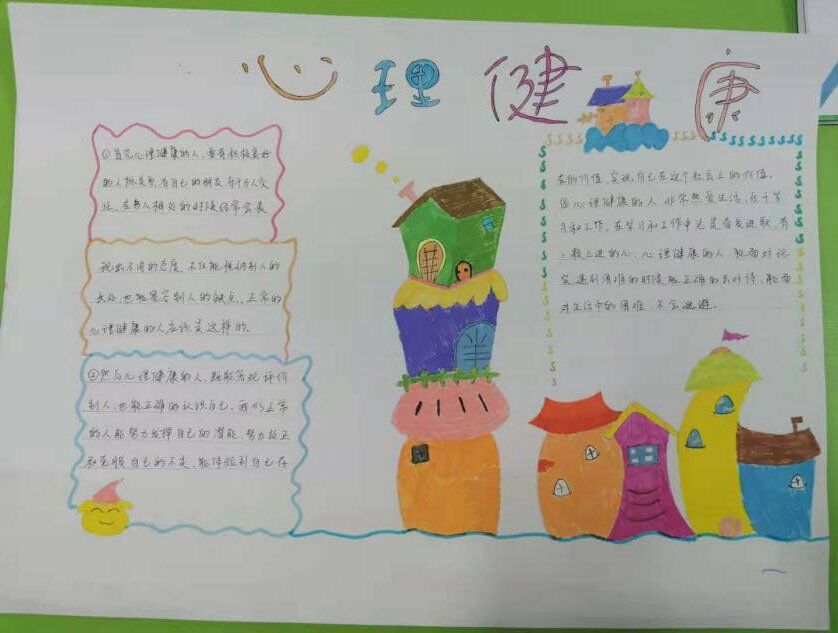 心理健康
①首先心理健康的人，要有积极良好
的人际关系，有自己的朋友，乐于与人交
往，在与人相处的时候经常会表
现出不同的态度，不仅能接纳别人的
长处，也能宽容别人的缺点，正常的
心理健康的人应该是这样的。
②然后心理健康的人，既能客观评价
别人，也能正确的认识自己，
的人能努力发挥自己的潜能，努力改正
和克服自己的不足，能体验到自己存
在的价值，实现自己在这个社会上的价值。
心理健康的人非常热爱生活，乐于学
习和工作，在学习和工作中总是奋发进取，有
上进的心，心理健康的人，能面对现
实，遇到困难的时候能正确的去对待，能面
对生活中的困难，不会逃避。